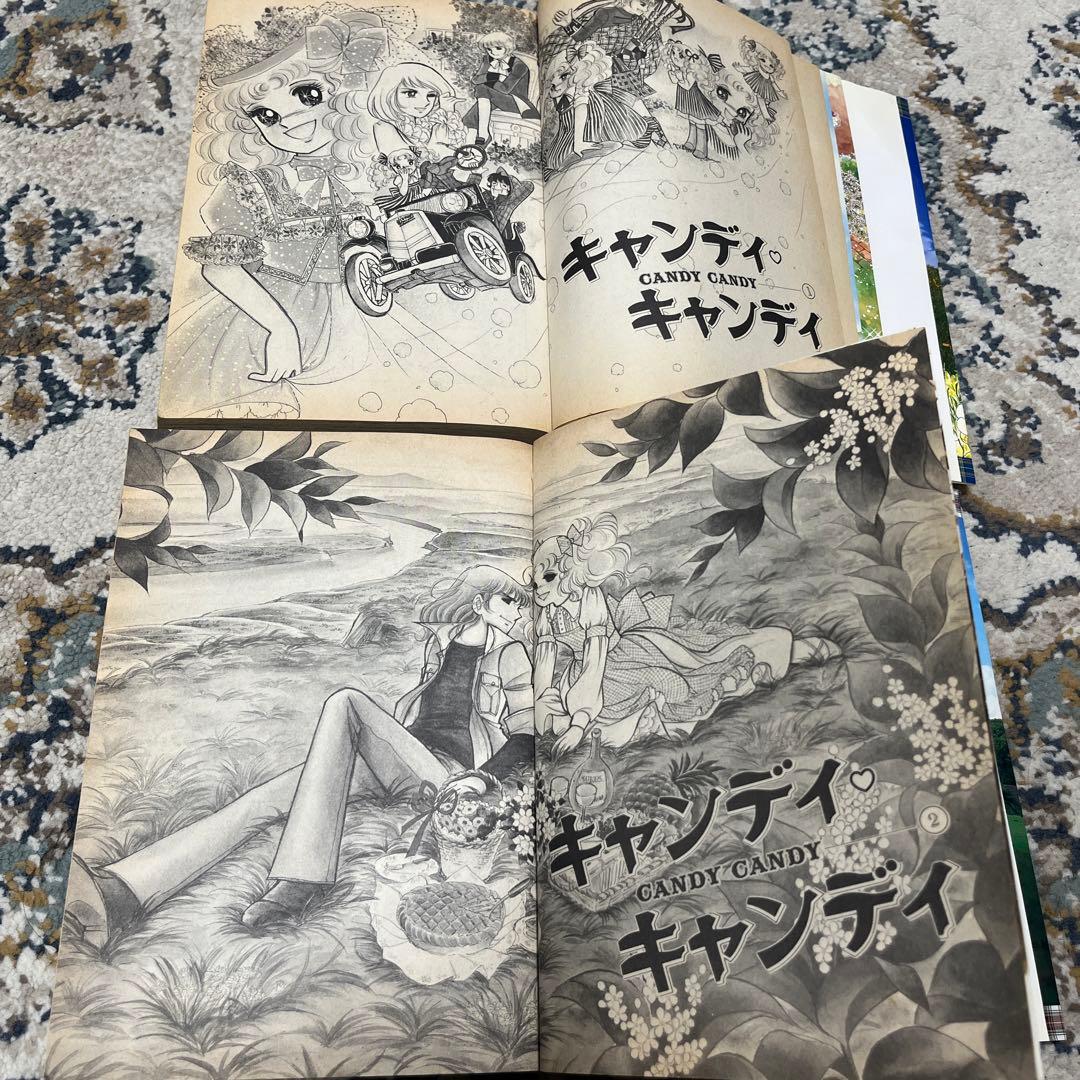 キャンディ♡
CANDY CANDY
1
キャンディ
キャンディ♡
2
CANDY CANDY
キャンディ